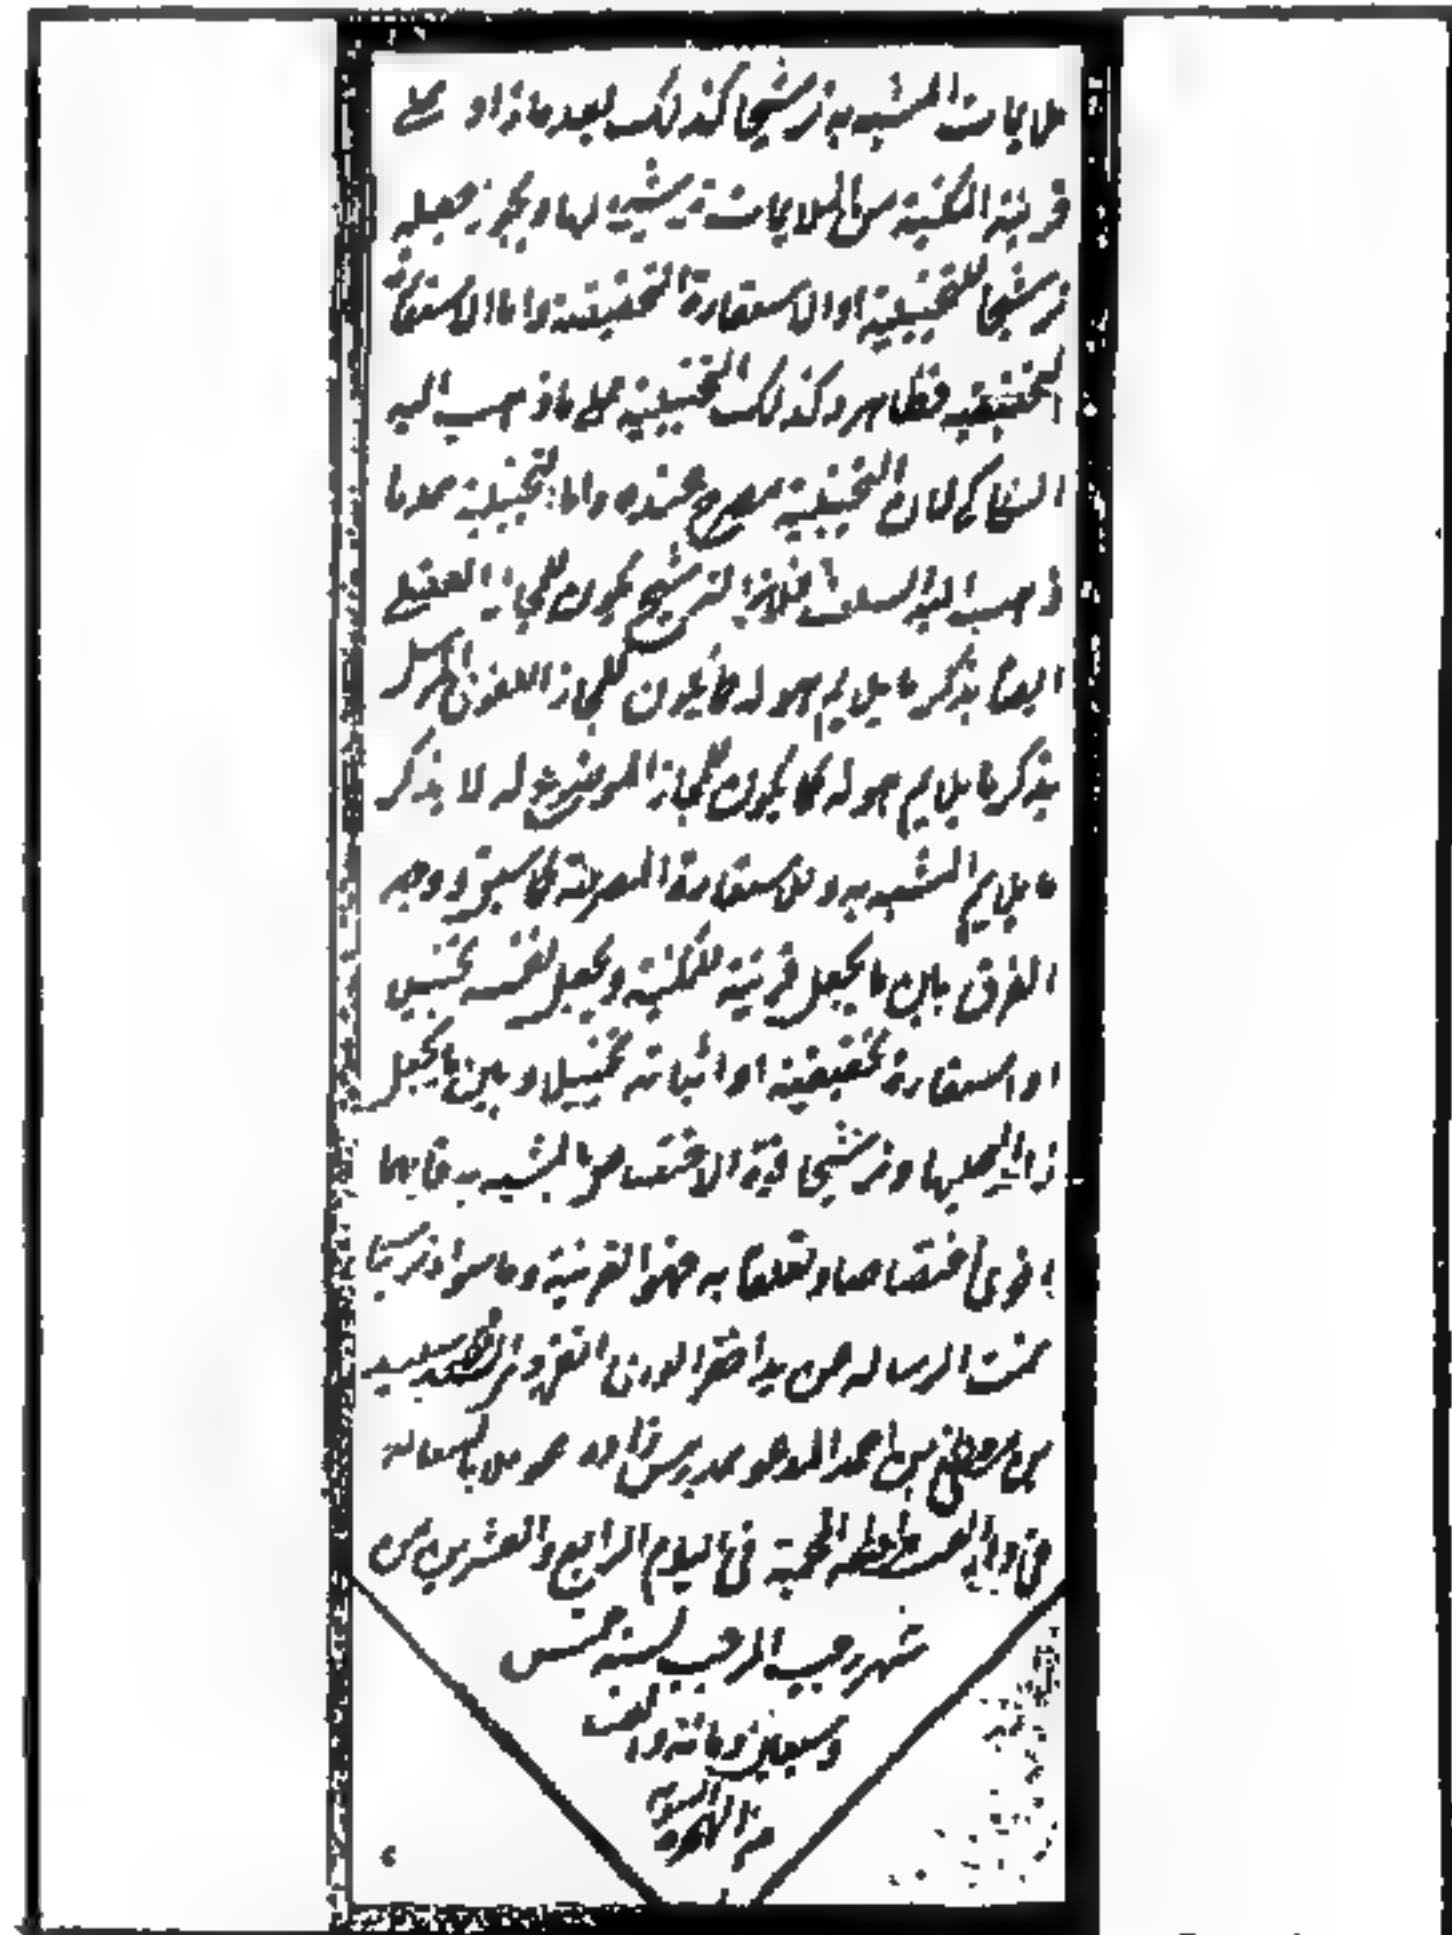 ملايمات المشبه به ترشيحا كذلك يعد ما زاد على
قرينة المكنية من الملايمات ترشيحا لها ويجوز جعله
ترشيحا للتخييلية او الاستعارة التحقيقية واما الاستعارة
التحقيقية فظاهر وكذلك التخييلية على ما ذهب اليه
السكاكي لان التخييلية مصرحة عنده واما التخييلية على ما
ذهب اليه السلف فلان الترشيح يكون للمجاز العقلي
ايضا بذكر ما يلايم هو له كما يكون للمجاز اللغوي المرسل
بذكر ما يلايم هو له كما يكون للمجاز الموضوع له لا بذكر
ما يلايم المشبه به وللاستعارة المصرحة كما سبق ووجه
الفرق بين ما يجعل قرينة للمكنية ويجعل نفسه تخييلا
او استعارة تحقيقية او اثباته تخييلا وبين ما يجعل
زائدا عليها وترشيحا قوة الاختصاص بالمشبه به فايهما
اقوى اختصاصا وتعلقا به فهو القرينة وما سواه ترشيح
تمت الرساله من يد احقر الورى
بن مصطفى بن احمد المدعو بمدرس زاده
في القسطنطنية المحمية في اليوم الرابع والعشرين من
شهر رجب المرجب لسنة خمس
وسبعين ومائة والف
من الهجرة النبوية